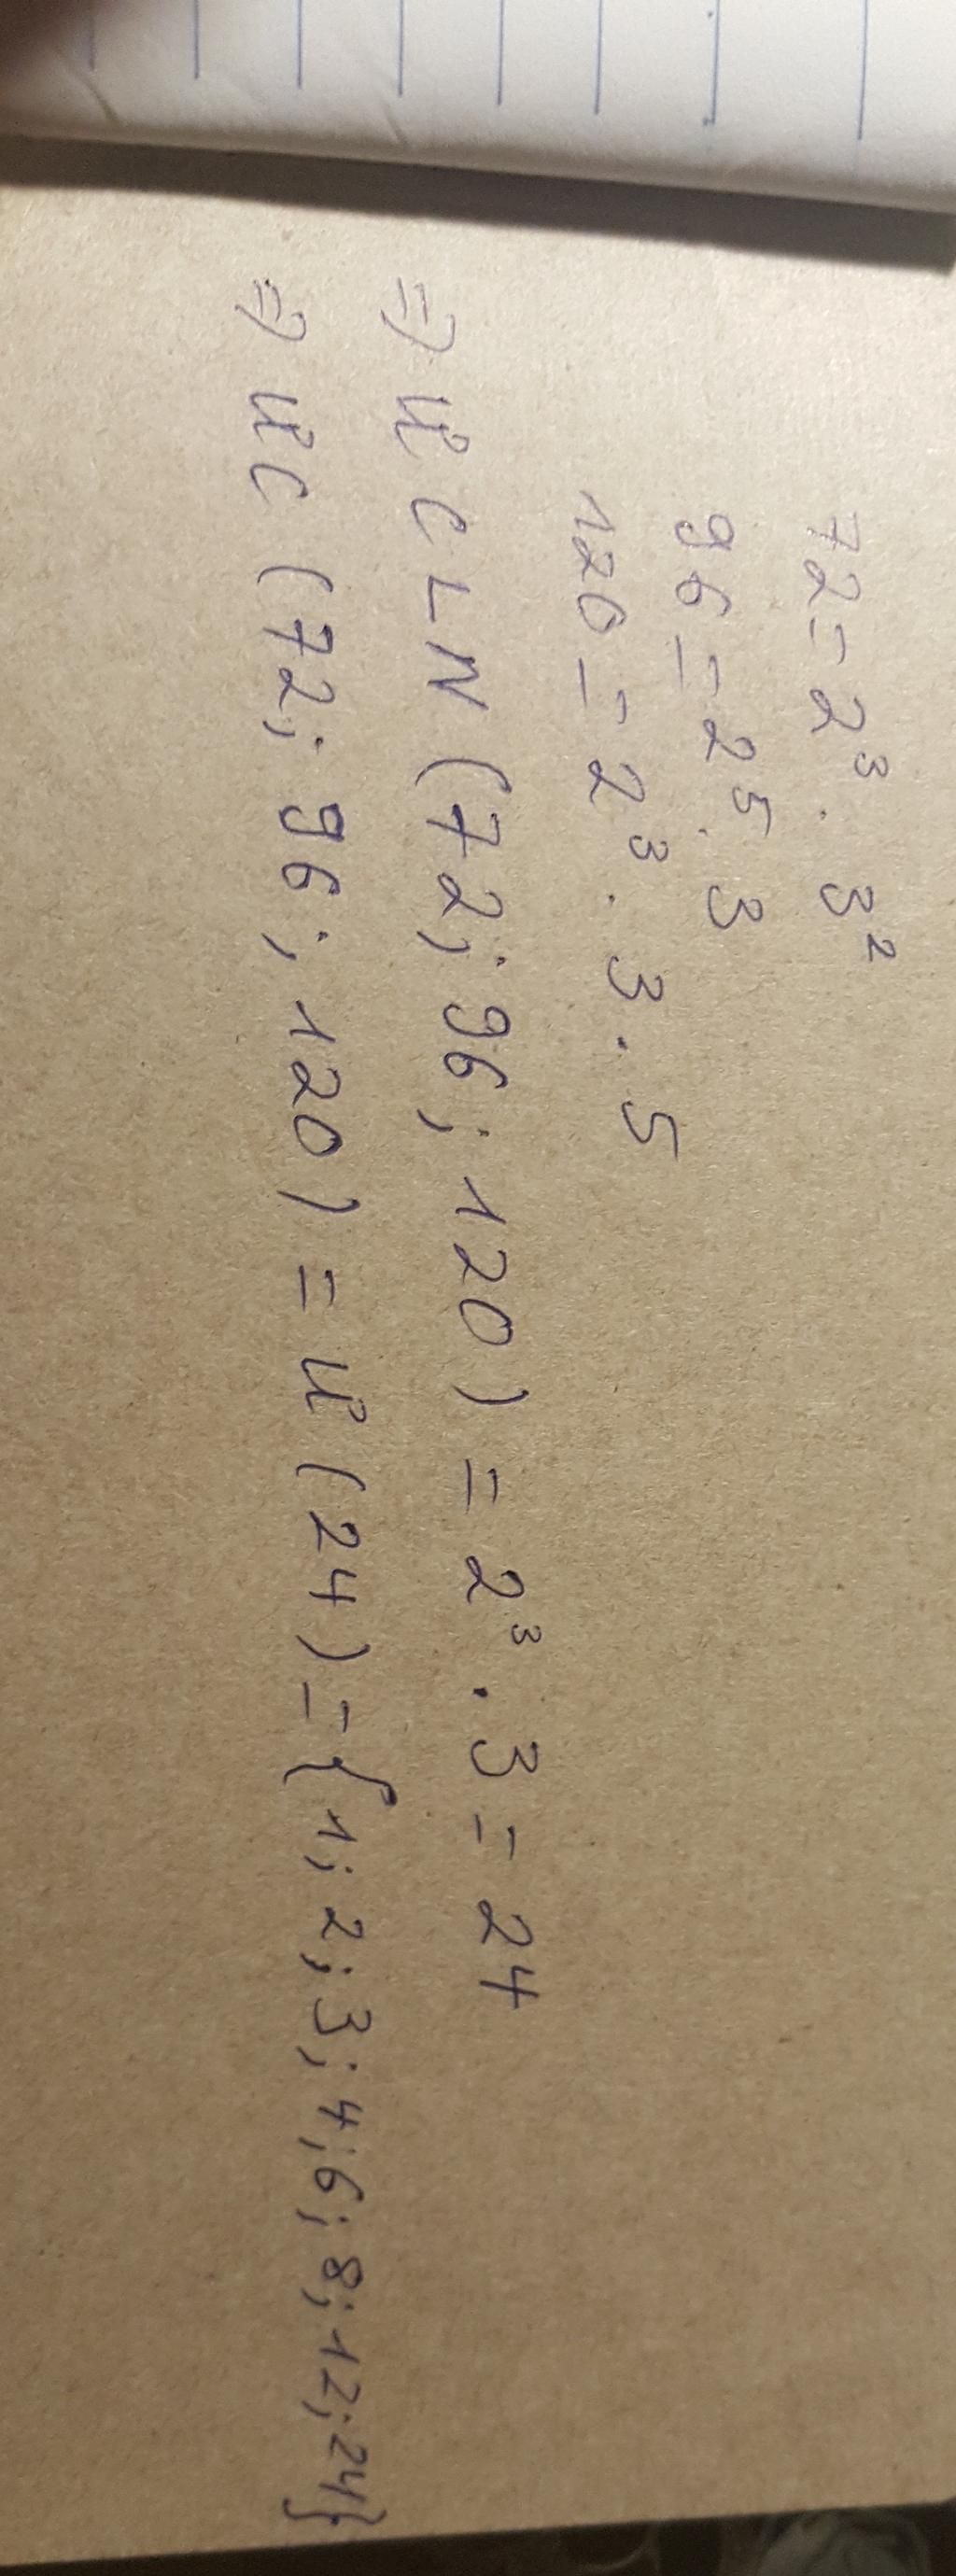 72 = 2³ . 3²
96 = 2⁵ . 3
120 = 2³ . 3 . 5
=> ƯCLN (72; 96; 120) = 2³ . 3 = 24
=> ƯC (72; 96; 120) = Ư (24) = {1; 2; 3; 4; 6; 8; 12; 24}